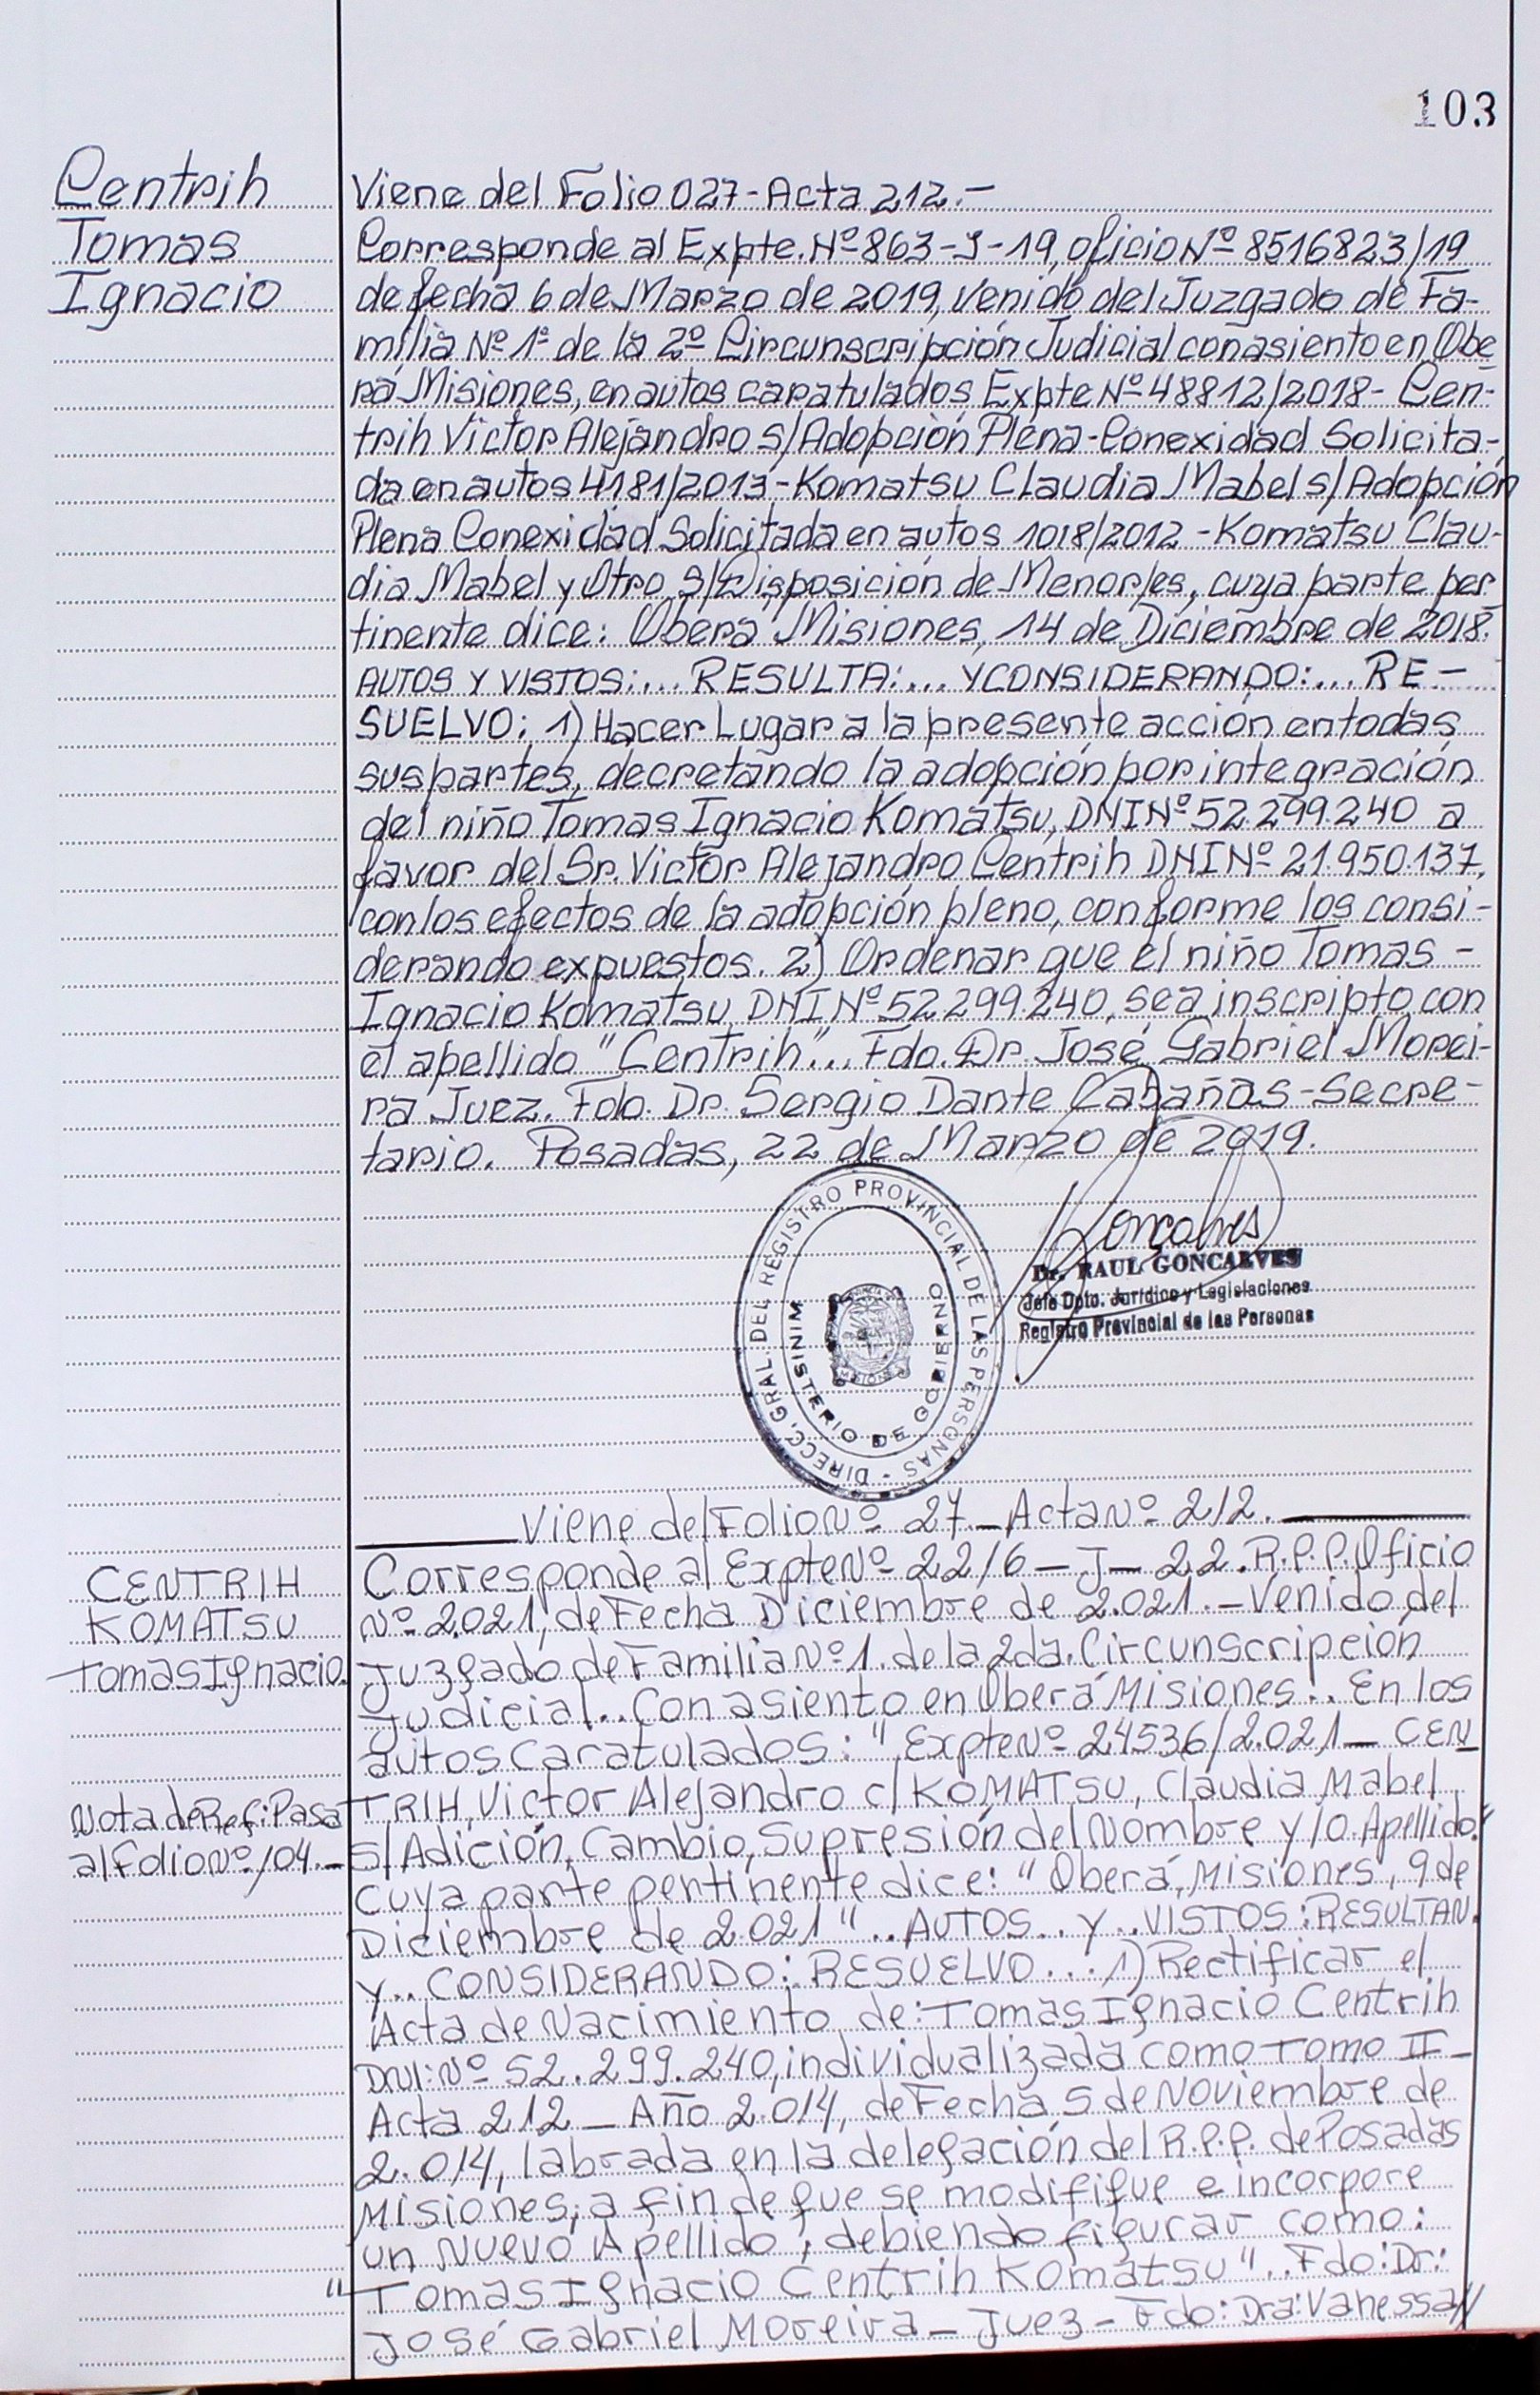 103
Centrih
Tomas
Ignacio
Viene del Folio 027 - Acta 212.-
Corresponde al Expte. Nº 863-J-19, oficio Nº 8516823/19
de fecha 6 de Marzo de 2019, venido del Juzgado de Fa-
milia Nº 1º de la 2º Circunscripción Judicial con asiento en Obe
rá Misiones, en autos caratulados Expte Nº 48812/2018 - Cen-
trih Victor Alejandro s/ Adopción Plena - Conexidad Solicita-
da en autos 4181/2013 - Komatsu Claudia Mabel s/ Adopción
Plena Conexidad Solicitada en autos 1018/2012 - Komatsu Clau-
dia Mabel y Otro s/ Disposición de Menor/es, cuya parte per
tinente dice: Oberá Misiones, 14 de Diciembre de 2018.
AUTOS Y VISTOS:... RESULTA:... Y CONSIDERANDO:... RE-
SUELVO: 1) Hacer Lugar a la presente acción en todas
sus partes, decretando la adopción por integración
del niño Tomas Ignacio Komatsu, DNI Nº 52.299.240 a
favor del Sr. Victor Alejandro Centrih DNI Nº 21.950.137,
con los efectos de la adopción pleno, conforme los consi-
derando expuestos. 2) Ordenar que el niño Tomas -
Ignacio Komatsu DNI Nº 52.299.240, sea inscripto con
el apellido "Centrih"... Fdo. Dr. José Gabriel Morei-
ra Juez. Fdo. Dr. Sergio Dante Cabañas - Secre-
tario. Posadas, 22 de Marzo de 2019.
DIRECC, GRAL. DEL REGISTRO PROVINCIAL DE LAS PERSONAS -
MINISTERIO DE GOBIERNO
MISIONES
Goncalves
Dr. RAUL GONCALVES
Jefe Dpto. Jurídico y Legislaciones
Registro Provincial de las Personas
Viene del Folio Nº 27 - Acta Nº 212.
CENTRIH
KOMATSU
Tomas Ignacio.
Nota de Ref: Pasa
al folio Nº 104.-
Corresponde al Expte Nº 2216 - J - 22. R.P.P. Oficio
Nº 2.021, de Fecha Diciembre de 2.021. - Venido del
Juzgado de Familia Nº 1. de la 2da. Circunscripción
Judicial.. Con asiento en Oberá Misiones:. En los
autos Caratulados: " Expte Nº 24536/2.021 - CEN
TRIH, Victor Alejandro c/ KOMATSU, Claudia Mabel
S/ Adición, Cambio, Supresión del Nombre y/o Apellido."
Cuya parte pentinente dice: " Oberá, Misiones, 9 de
Diciembre de 2021 ".. AUTOS.. y.. VISTOS: RESULTAN.
y.. CONSIDERANDO: RESUELVO... 1) Rectificar el
Acta de Nacimiento de: Tomas Ignacio Centrih
DNI: Nº 52.299.240, individualizada como Tomo II -
Acta 212 - Año 2.014, de Fecha 5 de Noviembre de
2.014, labrada en la delegación del R.P.P. de Posadas
Misiones; a fin de que se modifique e incorpore
un Nuevo Apellido; debiendo figurar como:
" Tomas Ignacio Centrih Komatsu ".. Fdo: Dr:
José Gabriel Moreira - Juez - Fdo: Dra: Vanessa//